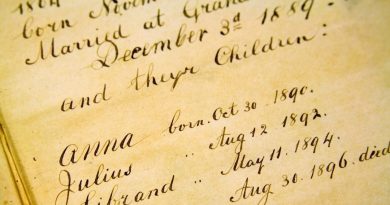 1864
born Novem
Married at Grand
December 3d 1889.
and theyr Children:
Anna born. Oct 30. 1890.
Julius " Aug 12 1892.
librand " May 11. 1894.
Aug 30. 1896. died